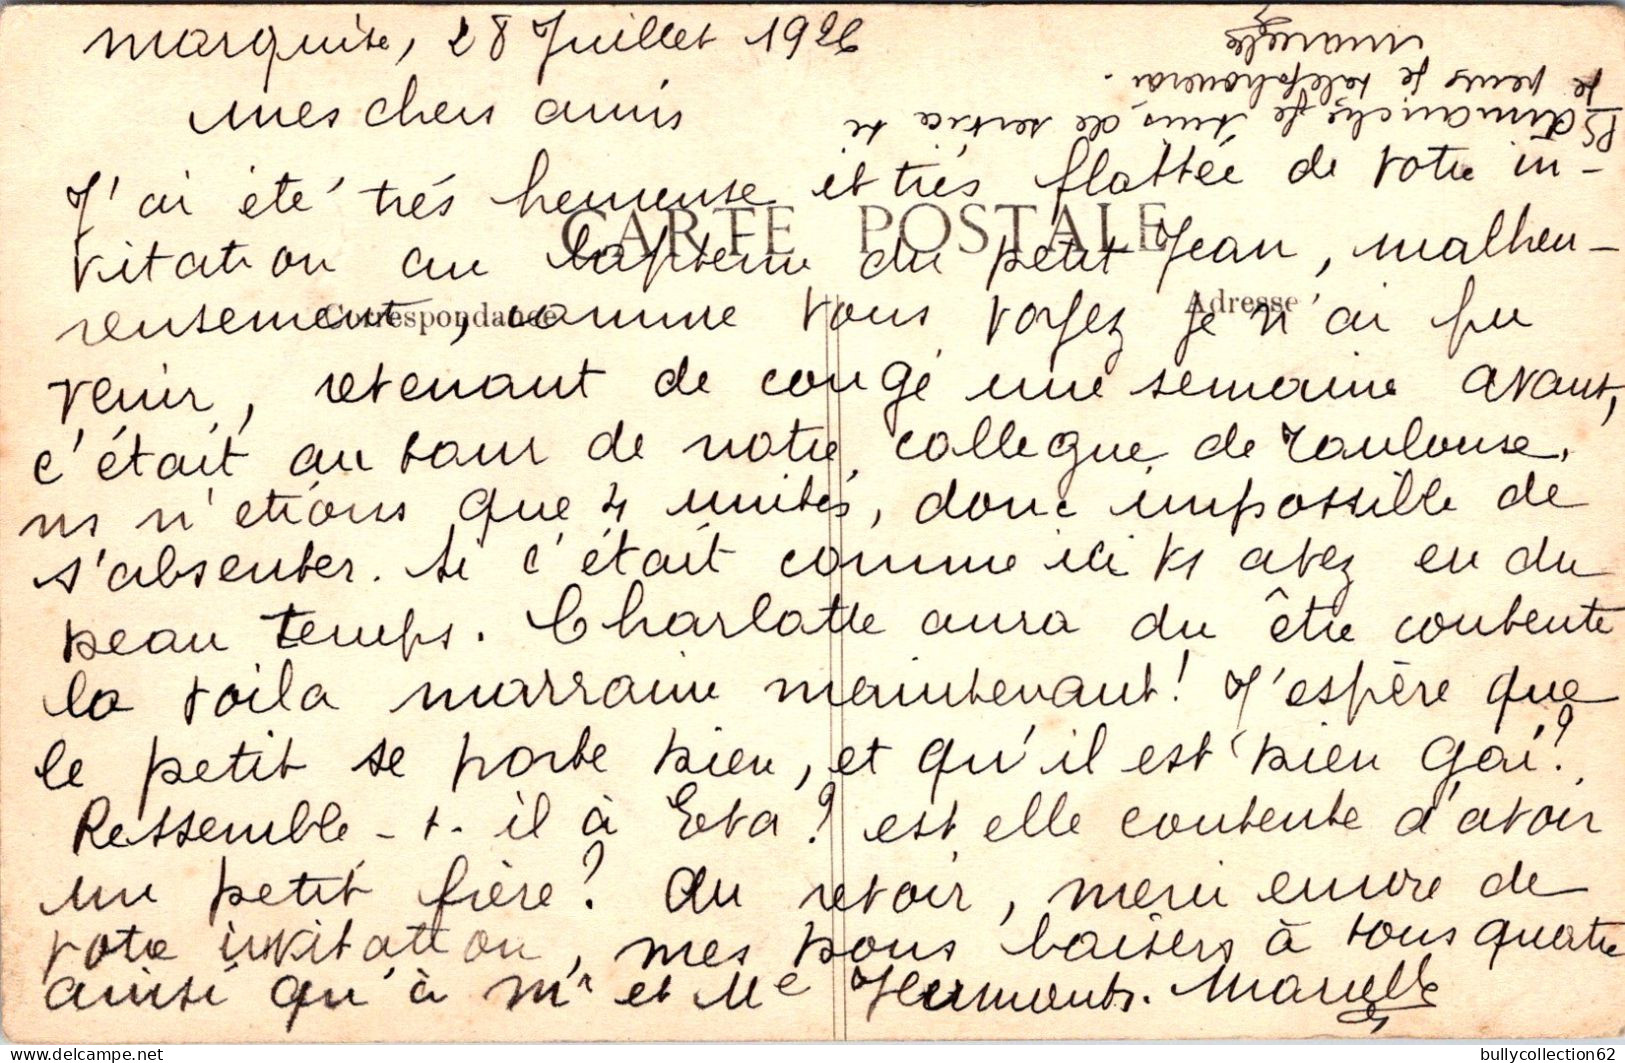 Marquise, 28 Juillet 1926
Mes chers amis
J'ai été très heureuse et très flattée de votre in-
vitation au baptême du petit Jean, malheu-
reusement, comme vous voyez je n'ai pu
venir, revenant de congé une semaine avant,
c'était au tour de notre collegue de Toulouse.
ns n'etions que 4 unités, donc impossible de
s'absenter. Si c'était comme ici vs avez eu du
beau temps. Charlotte aura du être contente
la voila marraine maintenant! J'espère que
le petit se porte bien, et qu'il est bien gai?
Ressemble-t-il à Eva? est elle contente d'avoir
un petit frère? Au revoir, merci encore de
votre invitation, mes bons baisers à tous quatre
ainsi qu'à Mr et Me Hermonts. Marcelle
PS dimanche je suis de service si
je peux je telephonerai.
Marcelle
CARTE POSTALE
Correspondance
Adresse
bullycollection62